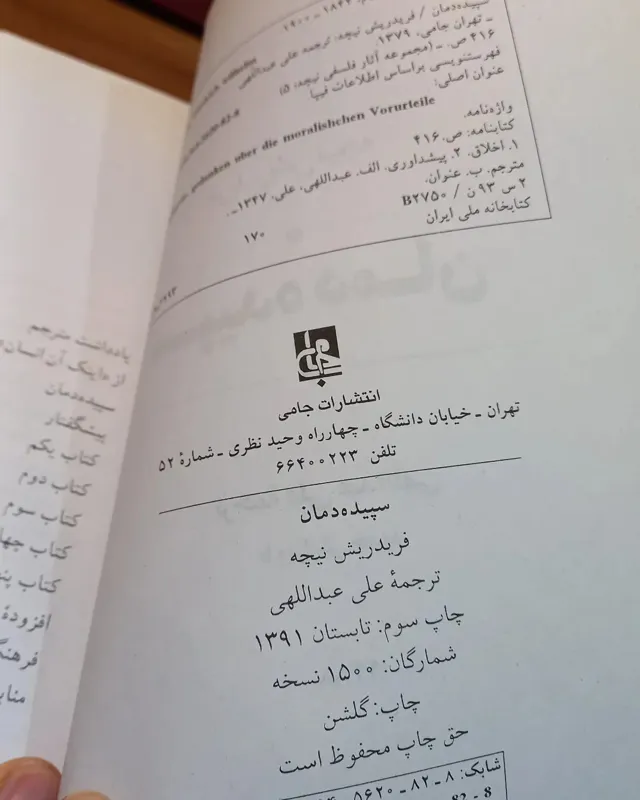 ۱۸۴۴ - ۱۹۰۰
سپیده‌دمان / فریدریش نیچه: ترجمه علی عبداللهی
ـ تهران جامی. ۱۳۷۹.
۴۱۶ ص. ـ (مجموعه آثار فلسفی نیچه: ۵)
فهرستنویسی براساس اطلاعات فیپا
عنوان اصلی:
gedanken uber die moralishchen Vorurteile
واژه‌نامه.
کتابنامه: ص. ۴۱۶
۱. اخلاق. ۲. پیشداوری. الف. عبداللهی، علی. ۱۳۴۷ـ .
مترجم. ب. عنوان.
۲ س ۹۳ ن / B۲۷۵۰
۱۷۰
کتابخانه ملی ایران
انتشارات جامی
تهران ـ خیابان دانشگاه ـ چهارراه وحید نظری ـ شمارهٔ ۵۲
تلفن ۶۶۴۰۰۲۲۳
سپیده‌دمان
فریدریش نیچه
ترجمهٔ علی عبداللهی
چاپ سوم: تابستان ۱۳۹۱
شمارگان: ۱۵۰۰ نسخه
چاپ: گلشن
حق چاپ محفوظ است
شابک: ۸ ـ ۸۲ ـ ۵۶۲۰ ـ
82 - 8
یادداشت مترجم
از «اینک آن انسان»
سپیده‌دمان
پیشگفتار
کتاب یکم
کتاب دوم
کتاب سوم
کتاب چها
کتاب پن
افزودهٔ
فرهنگ
منا